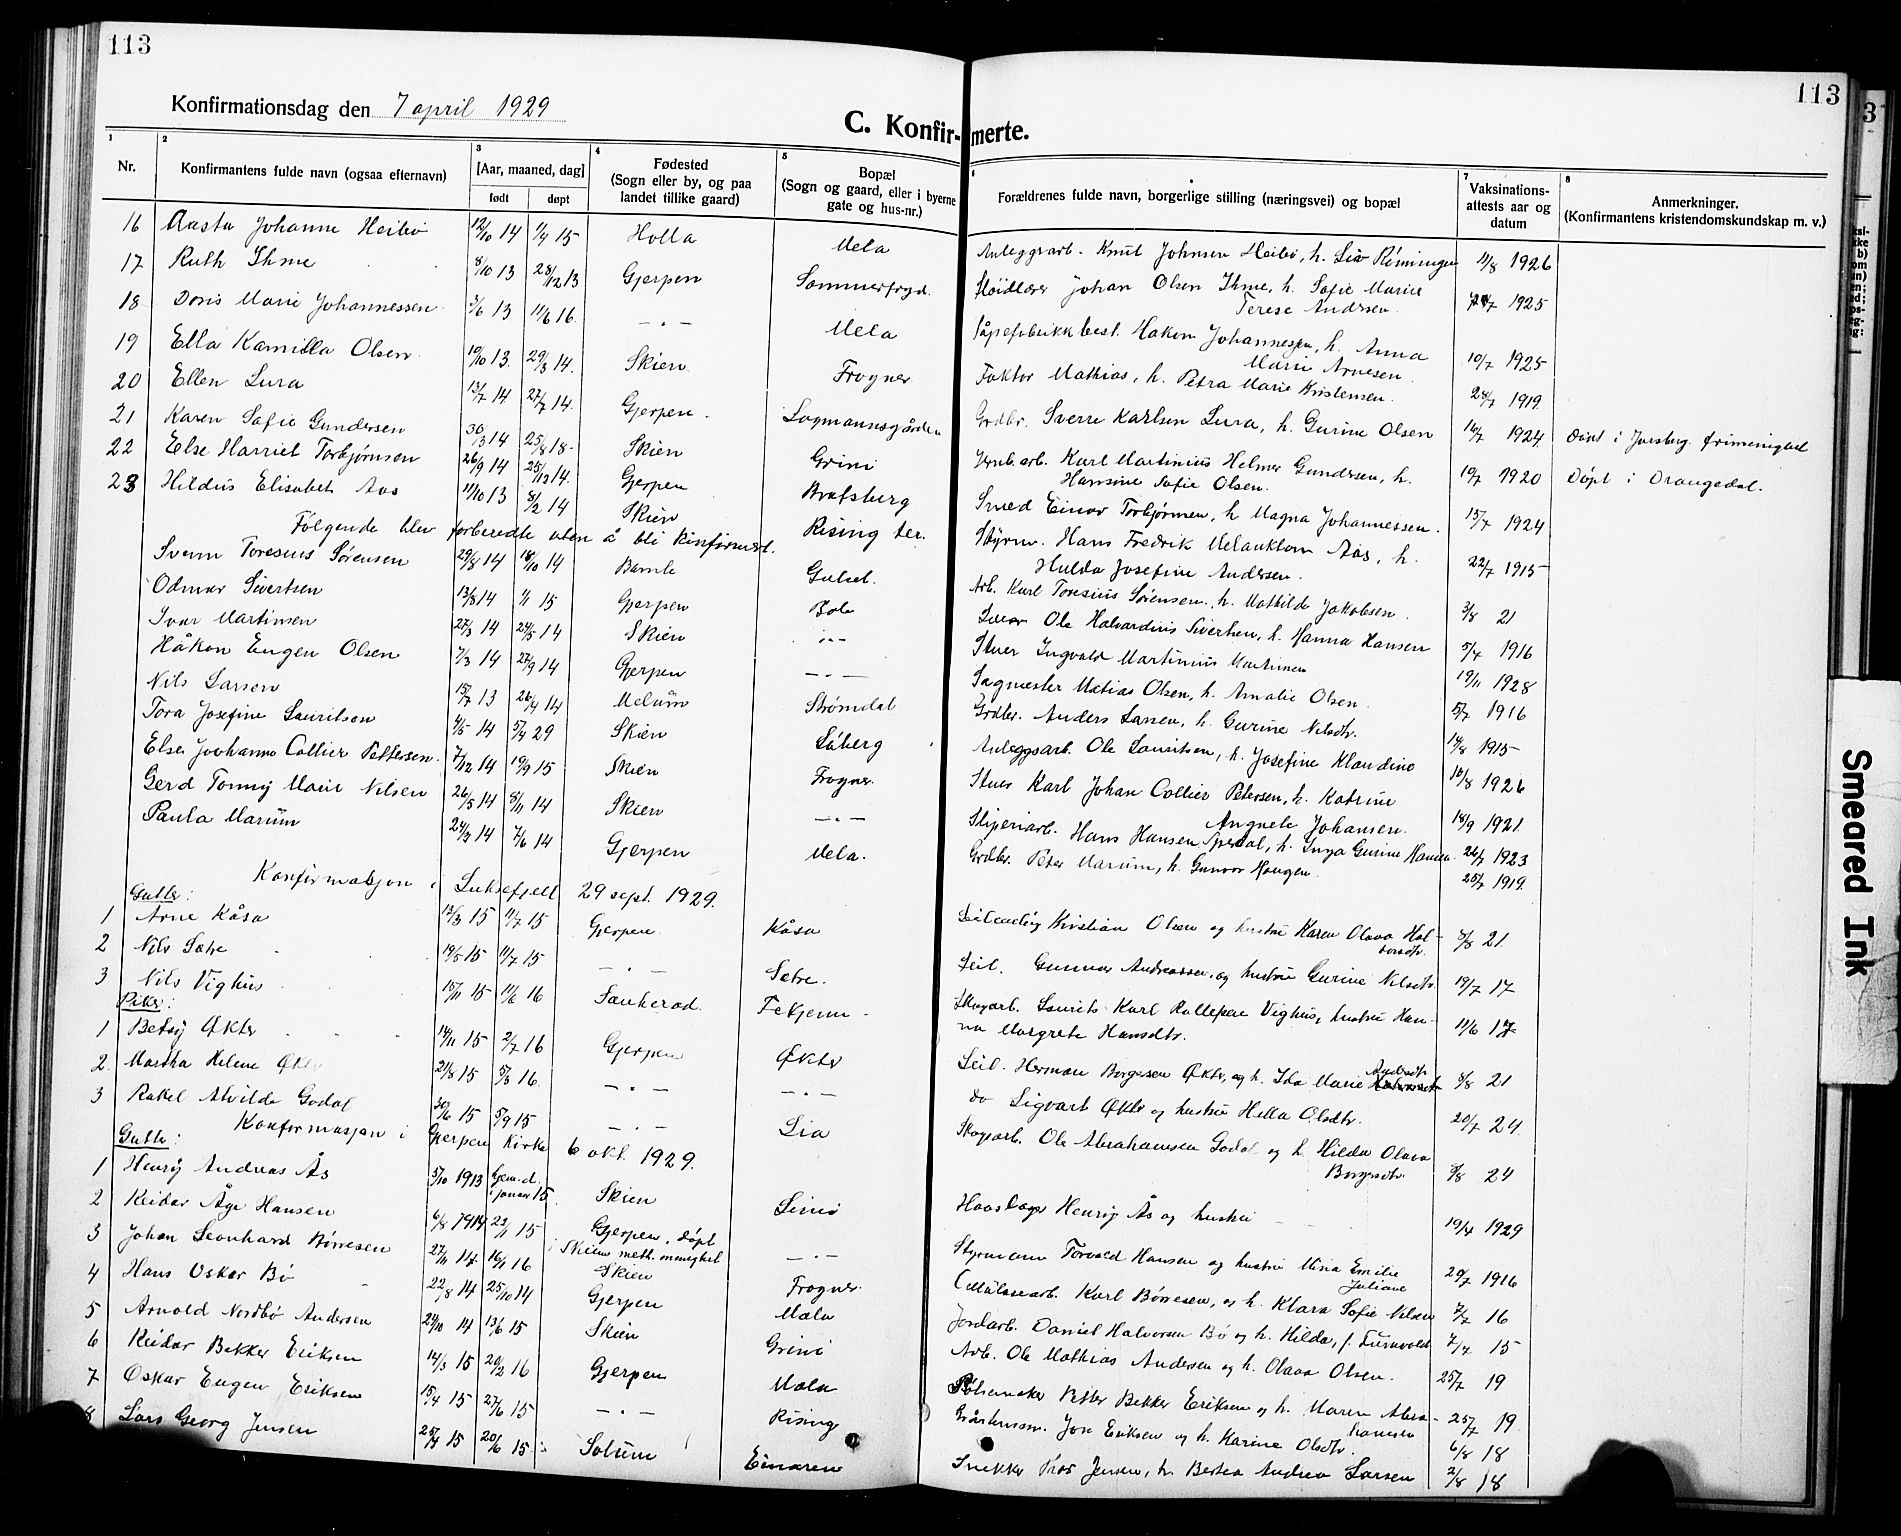 113
113
Konfirmationsdag den 7 april 1929
C. Konfirmerte.
1 2 3 4 5 6 7 8
Nr.
Konfirmantens fulde navn (ogsaa efternavn)
[Aar, maaned, dag]
født døpt
Fødested
(Sogn eller by, og paa
landet tillike gaard)
Bopæl
(Sogn og gaard, eller i byerne
gate og hus-nr.)
Forældrenes fulde navn, borgerlige stilling (næringsvei) og bopæl
Vaksinations-
attests aar og
datum
Anmerkninger.
(Konfirmantens kristendomskundskap m. v.)
16 Aasta Johanne Heibø 12/10 14 1/4 15 Holla Mela Anleggsarb. Knut Johnsen Heibø, h. Liv Rønningen 11/8 1926
17 Ruth Ihme 8/10 13 28/12 13 Gjerpen Sommerfryd Sløidlærer Johan Olsen Ihme, h. Sofie Marie
Terese Andersen 1925
18 Doris Marie Johannessen 5/6 13 11/6 16 — " — Mela Såpefabrikkbest. Håkon Johannessen, h. Anna
Marie Arnesen 10/7 1925
19 Ella Kamilla Olsen 10/10 13 29/3 14 Skien Frogner Faktor Mathias, h. Petra Marie Kristensen 24/7 1919
20 Ellen Lura 13/7 14 27/7 14 Gjerpen Lagmannsgården Grdbr. Sverre Karlsen Lura, h. Gurine Olsen 16/7 1924 Døpt i frimenighed
21 Karen Sofie Gundersen 30/3 14 25/8 18 Skien Grini Jernb.arb. Karl Martinius Helmer Gundersen, h.
Hansine Sofie Olsen 10/7 1920 Døpt i Drangedal.
22 Else Harriet Torbjørnsen 26/9 14 25/12 14 Gjerpen Bratsberg Smed Einar Torbjørnsen, h. Magna Johannessen 15/7 1924
23 Hildus Elisabet Aas 11/10 13 8/2 14 Skien Rising ter. Styrm. Hans Fredrik Melankton Aas, h.
Hulda Josefine Andersen 22/7 1915
Følgende blev forberedt uten å bli konfirmert.
Svenn Toresius Sørensen 29/8 14 18/10 14 Bamle Gulset Arb. Karl Toresius Sørensen, h. Mathilde Jakobsen 3/8 21
Odmar Sivertsen 13/8 14 1/1 15 Gjerpen Bole Ole Halvardius Sivertsen, h. Hanna Hansen 5/4 1916
Ivar Martinsen 27/3 14 24/5 14 Skien — " — Stuer Ingvald Martinius Martinsen 19/11 1928
Håkon Eugen Olsen 7/3 14 27/9 14 Gjerpen — " — Sagmester Matias Olsen, h. Amalie Olsen 5/7 1916
Nils Larsen 15/7 13 26/4 14 Melum Strømdal Grdbr. Anders Larsen, h. Gurine Nilsdtr. 14/8 1915
Tora Josefine Lauritsen 4/5 14 5/4 29 Skien Låberg Anleggsarb. Ole Lauritsen, h. Josefine Klaudine 16/8 1926
Else Jovhanne Collier Pettersen 7/12 14 19/9 15 Skien Frogner Stuer Karl Johan Collier Petersen, h. Katrine
Angnete Johansen 18/9 1921
Gerd Tonny Marie Nilsen 26/5 14 8/11 14 Skien — " — Sliperiarb. Hans Hansen Sperdal, h. Inga Gurine Hansen 26/7 1923
Paula Marum 24/3 14 7/6 14 Gjerpen Mela. Grdbr. Peter Marum, h. Gunvor Haugen 25/7 1919
Konfirmasjon i Luksefjell 29 sept. 1929.
Gutter:
1 Arne Kåsa 13/3 15 11/7 15 Gjerpen Kåsa Kristian Olsen og hustru Karen Olava Hal-
vorsdtr. 8/8 21
2 Nils Sætre 19/5 15 11/7 15 — " — Sætre. Leil. Gunnar Andreassen og hustru Gurine Nilsdtr. 19/7 17
3 Nils Vighus 15/11 15 11/6 16 Sauherad Fetjenn Skogarb. Laurits Karl Rollepene Vighus, hustru Han-
na Margrete Hansdtr. 11/6 17
Piker:
1 Betsy Økter 14/11 15 2/7 16 Gjerpen Økter Leil. Herman Borgersen Økter, og h. Ida Marie Andrsdtr. 8/8 21
2 Martha Helene Økter 21/8 15 5/3 16 — " — — " — do Sigvart Økter og hustru Hella Olsdtr. 20/7 24
3 Rakel Alvilde Godal 30/6 15 5/9 15 — " — Lia Skogsarb. Ole Abrahamsen Godal og h. Hilda Olava
Borgersdtr. 8/8 24
Konformasjon i Gjerpen kirke 6 okt. 1929.
Gutter:
1 Henry Andreas Ås 5/10 1913 hjem.d. i januar 15 Skien Limi Havsdager Henrig Ås og hustru 19/4 1929
2 Reidar Åge Hansen 6/8 1914 23/1 15 Gjerpen, døpt
i Skiens meth. menighet — " — Styrmann Torvald Hansen og hustru Mina Emilie
Juliane 20/7 1916
3 Johan Leonhard Børresen 27/11 14 16/1 16 Skien Frogner Cellulosearb. Karl Børresen, og h. Klara Sofie Nilsen 7/7 16
4 Hans Oskar Bø 22/8 14 25/10 14 Gjerpen Mæla Jordarb. Daniel Halvorsen Bø og h. Hilda, f. Furuvold 7/7 15
5 Arnold Nordbø Andersen 24/10 14 13/6 15 Skien Grini Arb. Ole Mathias Andersen og h. Olava Olsen. 25/7 19
6 Reidar Bekker Eriksen 14/3 15 20/2 16 Gjerpen Mæla Pølsemaker Petter Bekker Eriksen og h. Maren Abra-
hamsen 25/7 19
7 Oskar Eugen Eriksen 15/4 15 27/6 15 — " — Rising Gråstensm. Jon Eriksen og h. Karine Olsdtr. 6/8 18
8 Lars Georg Jensen 25/4 15 20/6 15 Solum Einaren Snekker Thor Jensen, h. Bertea Andrea Larsen 2/8 18
Smeared Ink